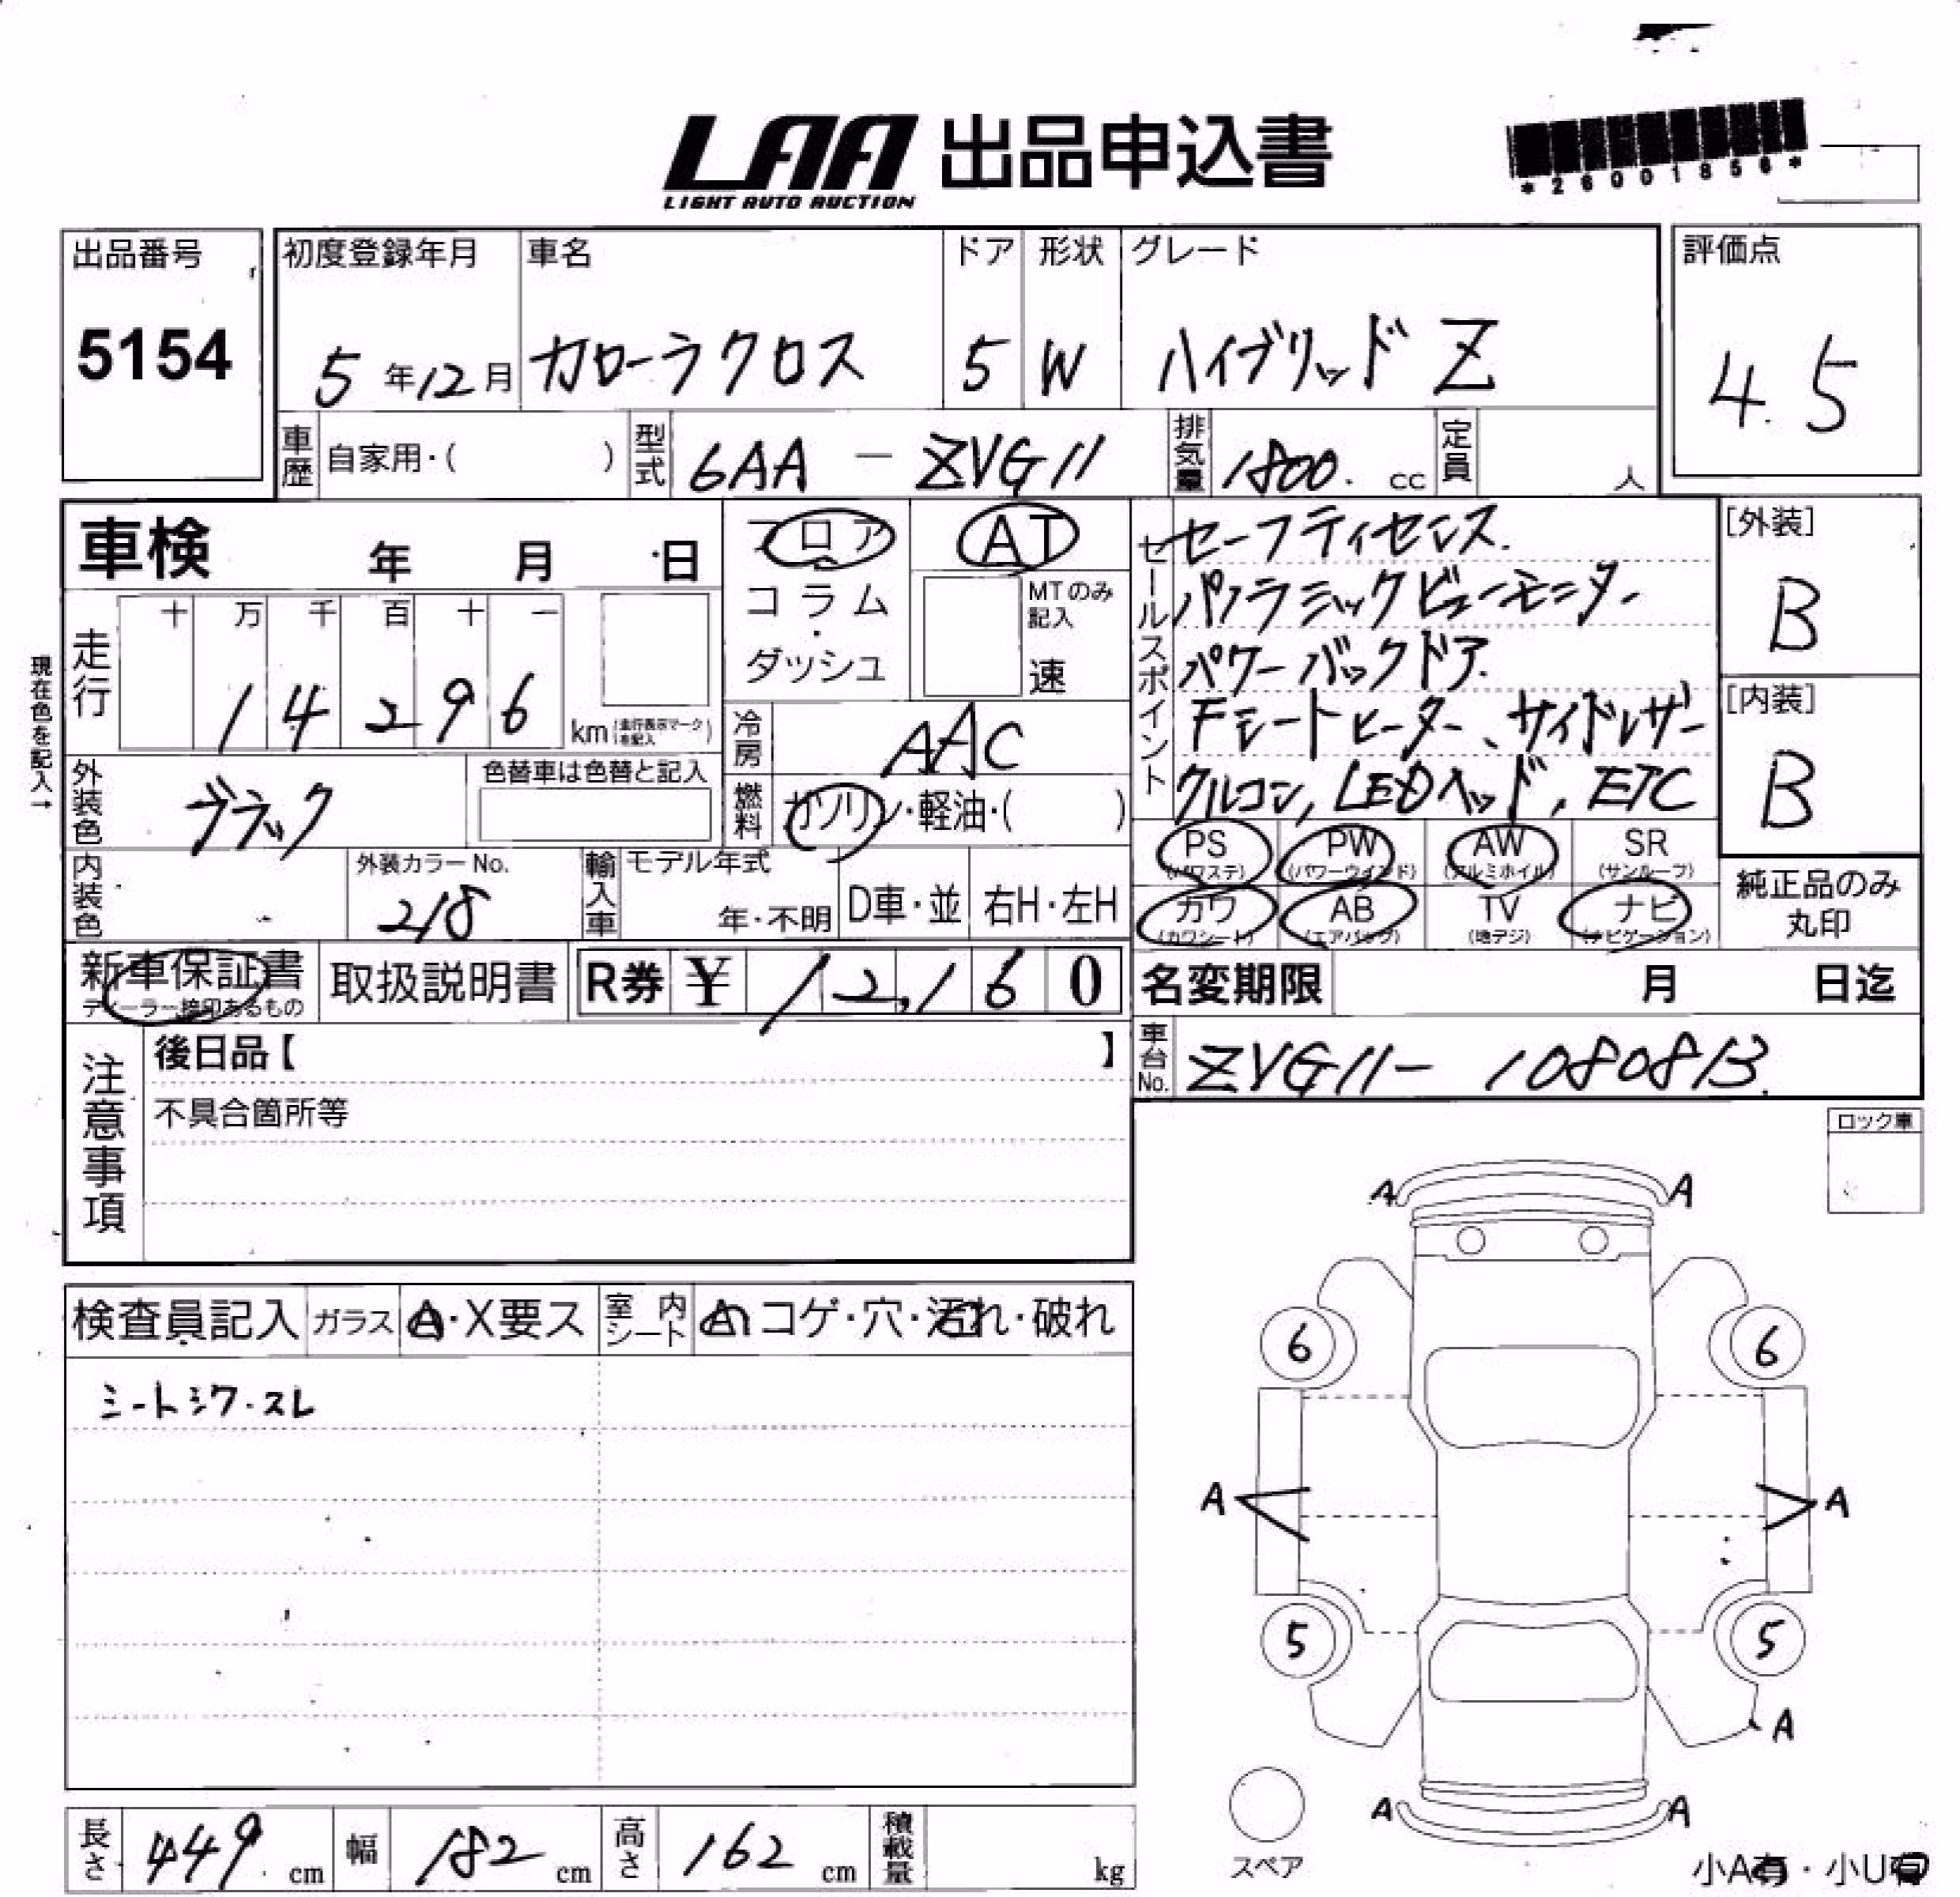 LAA 出品申込書
LIGHT AUTO AUCTION
*26001856*
出品番号
5154
初度登録年月
5年12月
車名
カローラクロス
ドア
5
形状
W
グレード
ハイブリッド Z
評価点
4.5
車歴
自家用・( )
型式
6AA - ZVG11
排気量
1800. cc
定員
人
車検 年 月 日
フロア
コラム
・
ダッシュ
AT
MTのみ
記入
速
セールスポイント
セーフティセンス.
パノラミックビューモニター
パワーバックドア.
Fシートヒーター、サイドレザー
クルコン, LEDヘッド, ETC
[外装]
B
[内装]
B
現在色を記入→
走行
十 万 千 百 十 一
1 4 2 9 6
km (走行表示マークを記入)
冷房
AAC
外装色
ブラック
色替車は色替と記入
燃料
ガソリン・軽油・( )
PS
(パワステ)
PW
(パワーウインド)
AW
(アルミホイル)
SR
(サンルーフ)
カワ
(カワシート)
AB
(エアバッグ)
TV
(地デジ)
ナビ
(ナビゲーション)
純正品のみ
丸印
内装色
外装カラーNo.
218
輸入車
モデル年式
年・不明
D車・並
右H・左H
新車保証書
ディーラー捺印あるもの
取扱説明書
R券 ¥ 12,160
名変期限 月 日迄
注意事項
後日品【 】
不具合箇所等
車台No.
ZVG11- 1080813.
ロック車
検査員記入
ガラス
A・X要ス
室内シート
コゲ・穴・汚れ・破れ
シートシワ・スレ
A A
6 6
A A
5 5
A
A A
スペア
長さ 449 cm
幅 182 cm
高さ 162 cm
積載量 kg
小A有・小U有